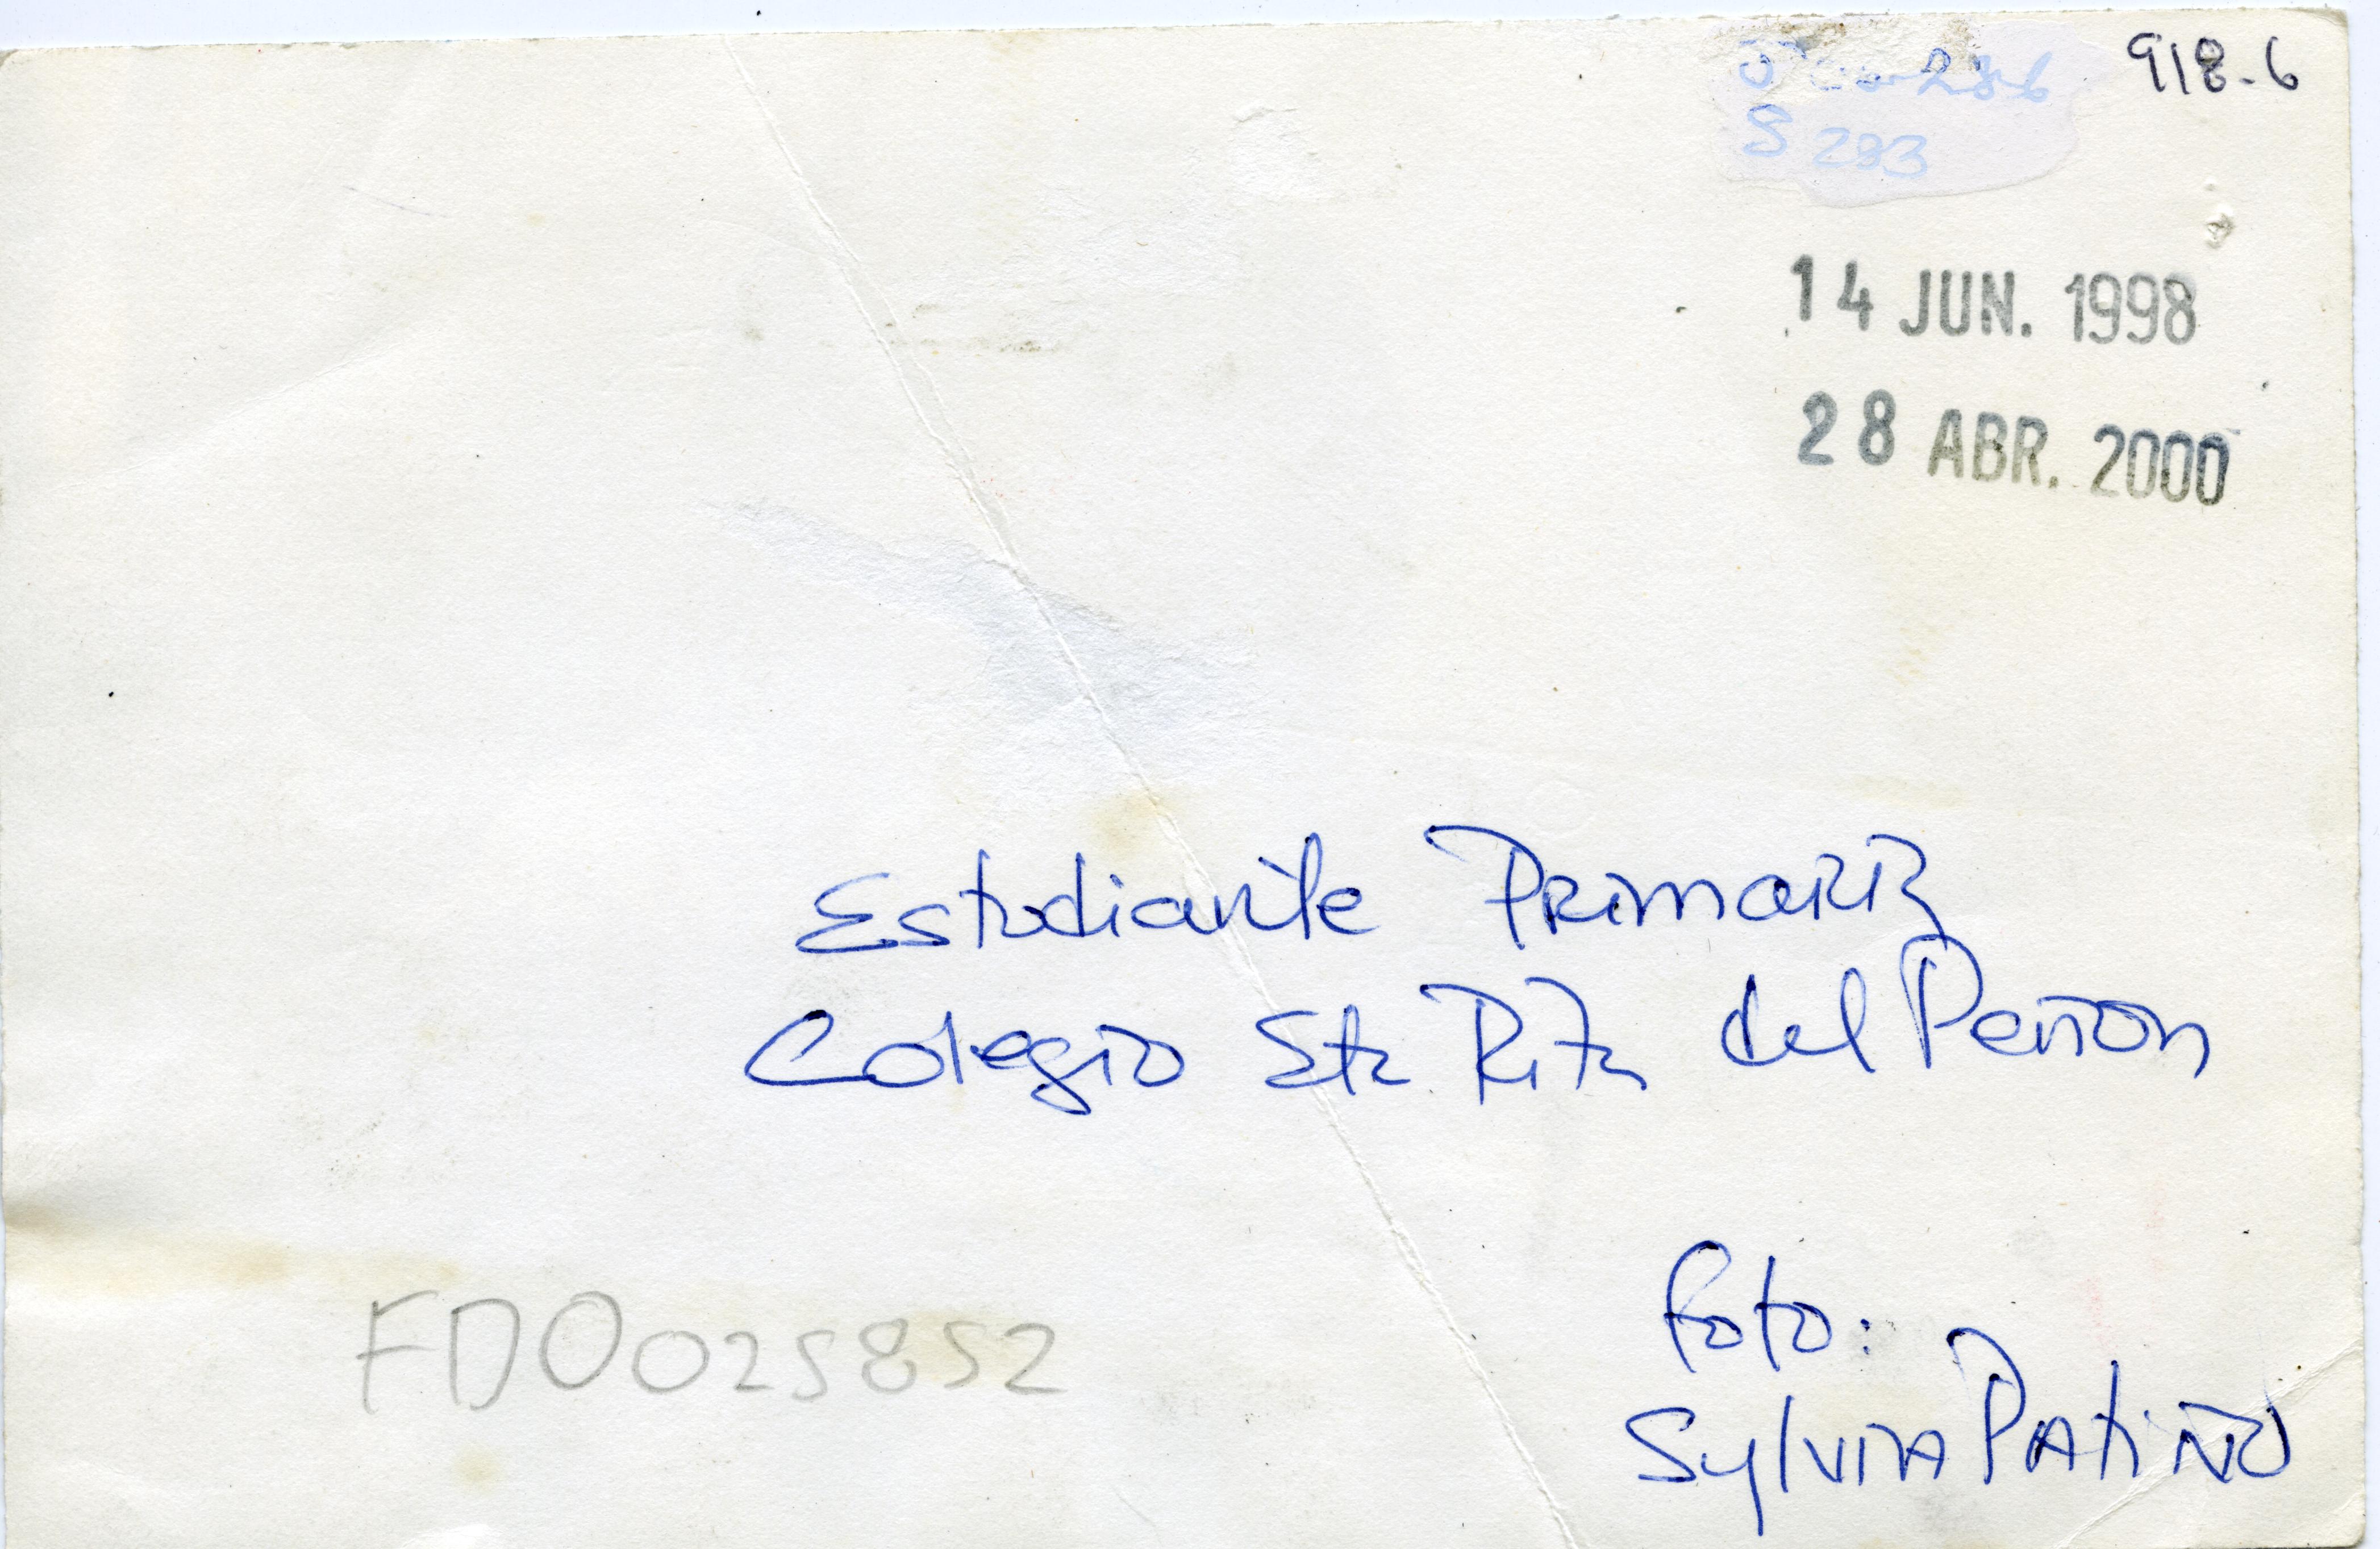 918-6
S 283
14 JUN. 1998
28 ABR. 2000
Estudiante Primaria
Colegio Sta Rita del Peñon
foto:
Sylvia Patiño
FD0025852